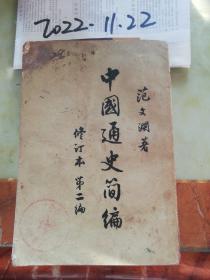 2022-11-22
范文瀾著
中國通史简编
修订本 第二编